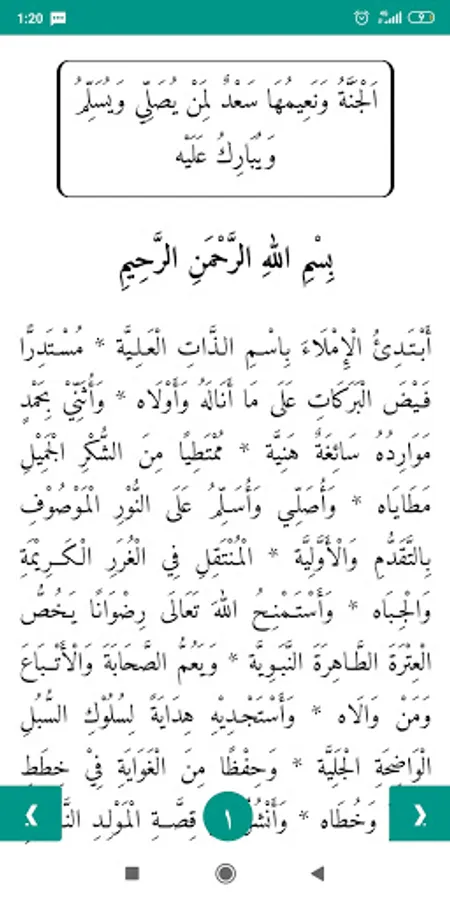 1:20
4G
9
اَلْجَنَّةُ وَنَعِيمُهَا سَعْدٌ لِمَنْ يُصَلِّي وَيُسَلِّمُ
وَيُبَارِكُ عَلَيْه
بِسْمِ اللهِ الرَّحْمَنِ الرَّحِيمِ
أَبْتَدِئُ الْإِمْلَاءَ بِاسْمِ الذَّاتِ الْعَلِيَّة * مُسْتَدِرًّا
فَيْضَ الْبَرَكَاتِ عَلَى مَا أَنَالَهُ وَأَوْلَاه * وَأُثَنِّيْ بِحَمْدٍ
مَوَارِدُهُ سَائِغَةٌ هَنِيَّة * مُمْتَطِيًا مِنَ الشُّكْرِ الْجَمِيْلِ
مَطَايَاه * وَأُصَلِّي وَأُسَلِّمُ عَلَى النُّوْرِ الْمَوْصُوْفِ
بِالتَّقَدُّمِ وَالْأَوَّلِيَّة * الْمُنْتَقِلِ فِي الْغُرَرِ الْكَرِيْمَةِ
وَالْجِبَاه * وَأَسْتَمْنِحُ اللهَ تَعَالَى رِضْوَانًا يَخُصُّ
الْعِتْرَةَ الطَّاهِرَةَ النَّبَوِيَّة * وَيَعُمُّ الصَّحَابَةَ وَالْأَتْبَاعَ
وَمَنْ وَالَاه * وَأَسْتَجْدِيْهِ هِدَايَةً لِسُلُوْكِ السُّبُلِ
الْوَاضِحَةِ الْجَلِيَّة * وَحِفْظًا مِنَ الْغَوَايَةِ فِيْ خِطَطِ
وَخُطَاه * قِصَّةِ الْمَوْلِدِ
١